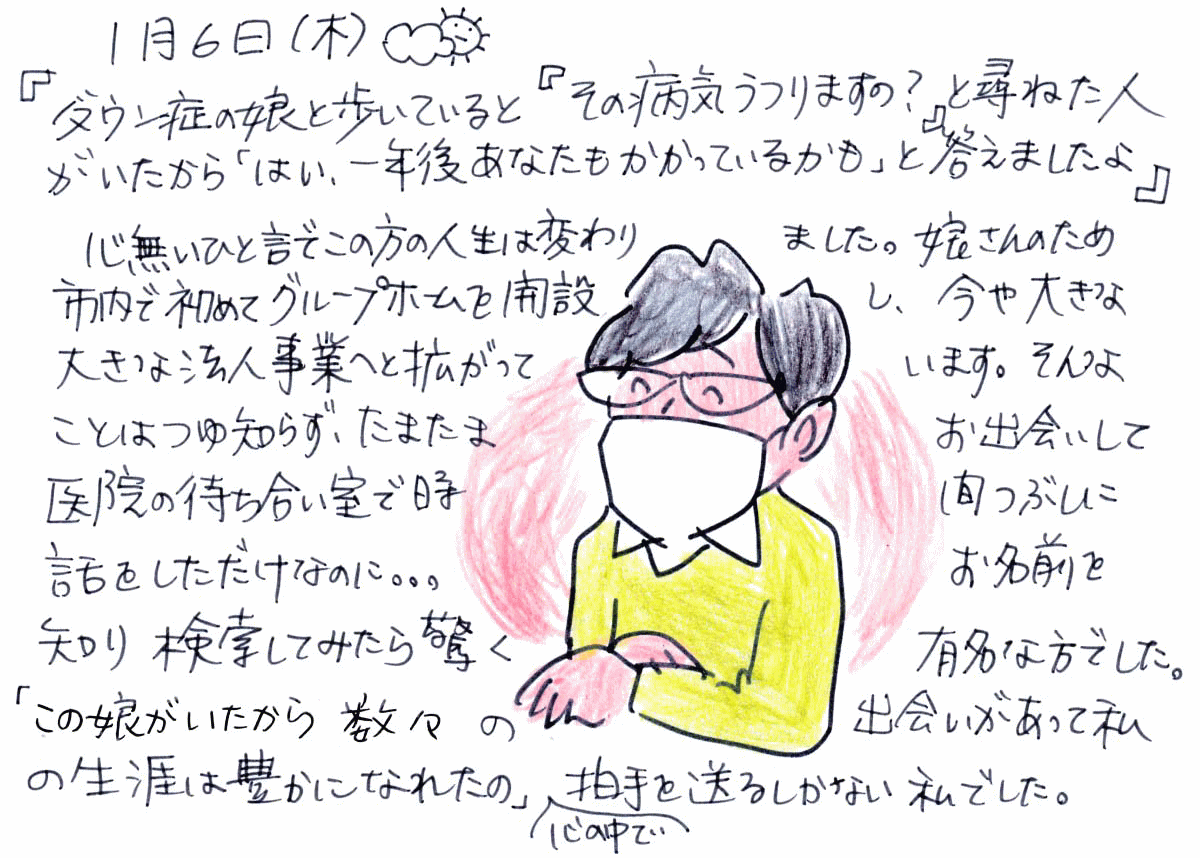 1月6日(木)
『ダウン症の娘と歩いていると『その病気うつりますの?』と尋ねた人
がいたから「はい、一年後あなたもかかっているかも」と答えましたよ』
心無いひと言でこの方の人生は変わりました。娘さんのため
市内で初めてグループホームを開設し、今や大きな
大きな法人事業へと拡がっています。そんな
ことはつゆ知らず、たまたまお出会いして
医院の待ち合い室で時間つぶしに
話をしただけなのに。。。お名前を
知り検索してみたら驚く有名な方でした。
「この娘がいたから数々の出会いがあって私
の生涯は豊かになれたの」拍手を送るしかない私でした。
心の中で